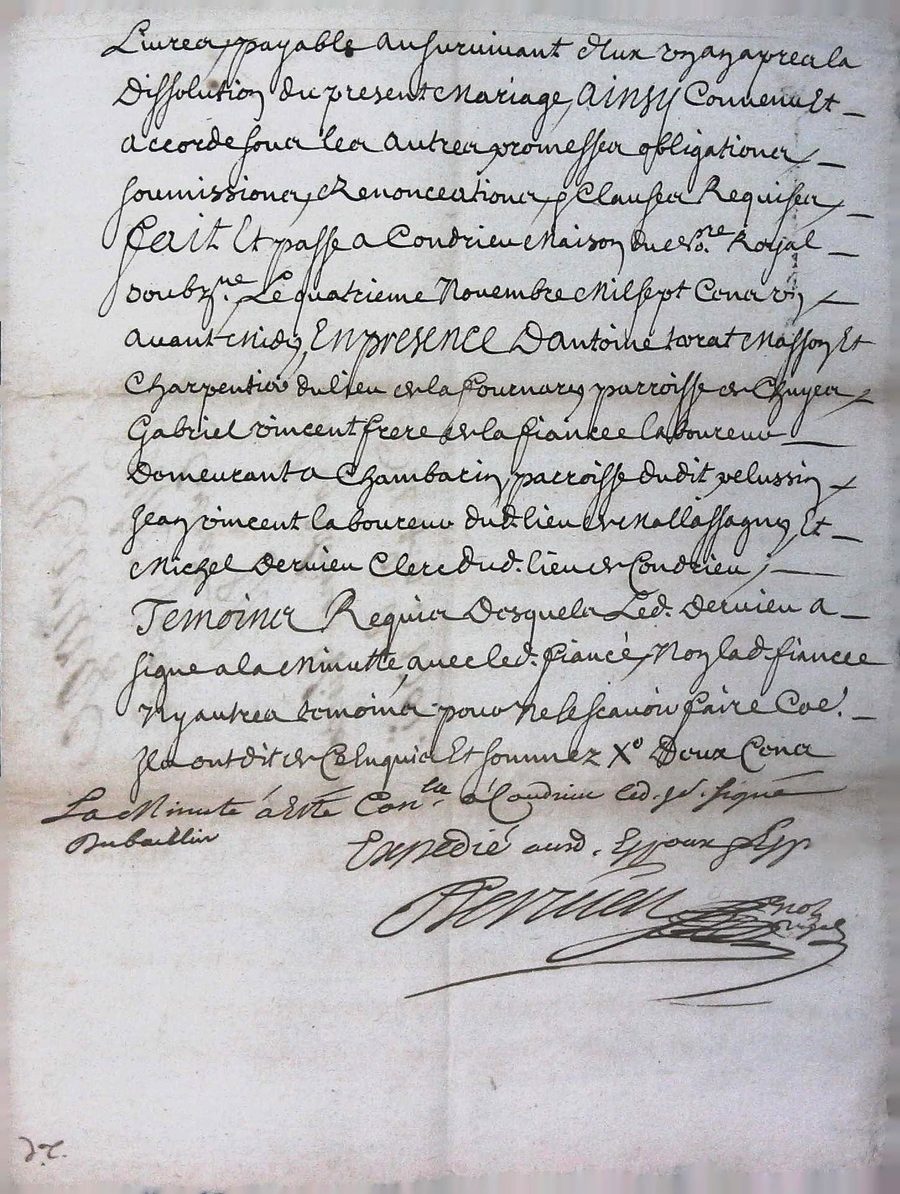 Livres, payable au survivant d'Eux un an apres la
Dissolution du present Mariage, AINSY Convenu Et
accorde sous les autres promesses obligations,
soumissions, Renonceations, & Clauses Requises,
fait Et passe a Condrieu Maison du no.re Royal
soubz.ne, Le quatrieme Novembre Mil sept Cens un,
avant Midy, EN PRESENCE D'antoine torat Masson Et
Charpentier du lieu de la fournary parroisse de Chuyes,
Gabriel vincent frere de la fiancee laboureur
Demeurant a Chambarin, parroisse dudit pelussin,
Jean vincent laboureur dud. lieu de Mallassagny, Et
Michel Dervieu Clerc dud. lieu de Condrieu,
TEMOINS Requis Desquels Led. Dervieu a
signe a la Minutte, avec led. fiancé, Non lad. fiancee
Ny autres temoins pour Ne le scavoir faire Coe.
Ils ont dit de Ce Enquis Et sommez
La Minute á Esté Con.lée á Condrieu led. jr. signé
Expedié ausd. Espoux
Dervieu